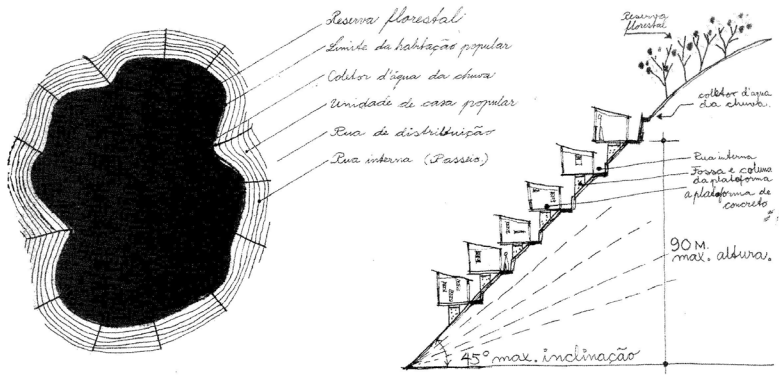 Reserva florestal
Limite da habitação popular
Coletor d'água da chuva
Unidade de casa popular
Rua de distribuição
Rua interna (Passeio)
Reserva
florestal
coletor d'água
da chuva.
Rua interna
Fossa e coluna
da plataforma
a plataforma de
concreto
90 M.
max. altura.
45° max. inclinação